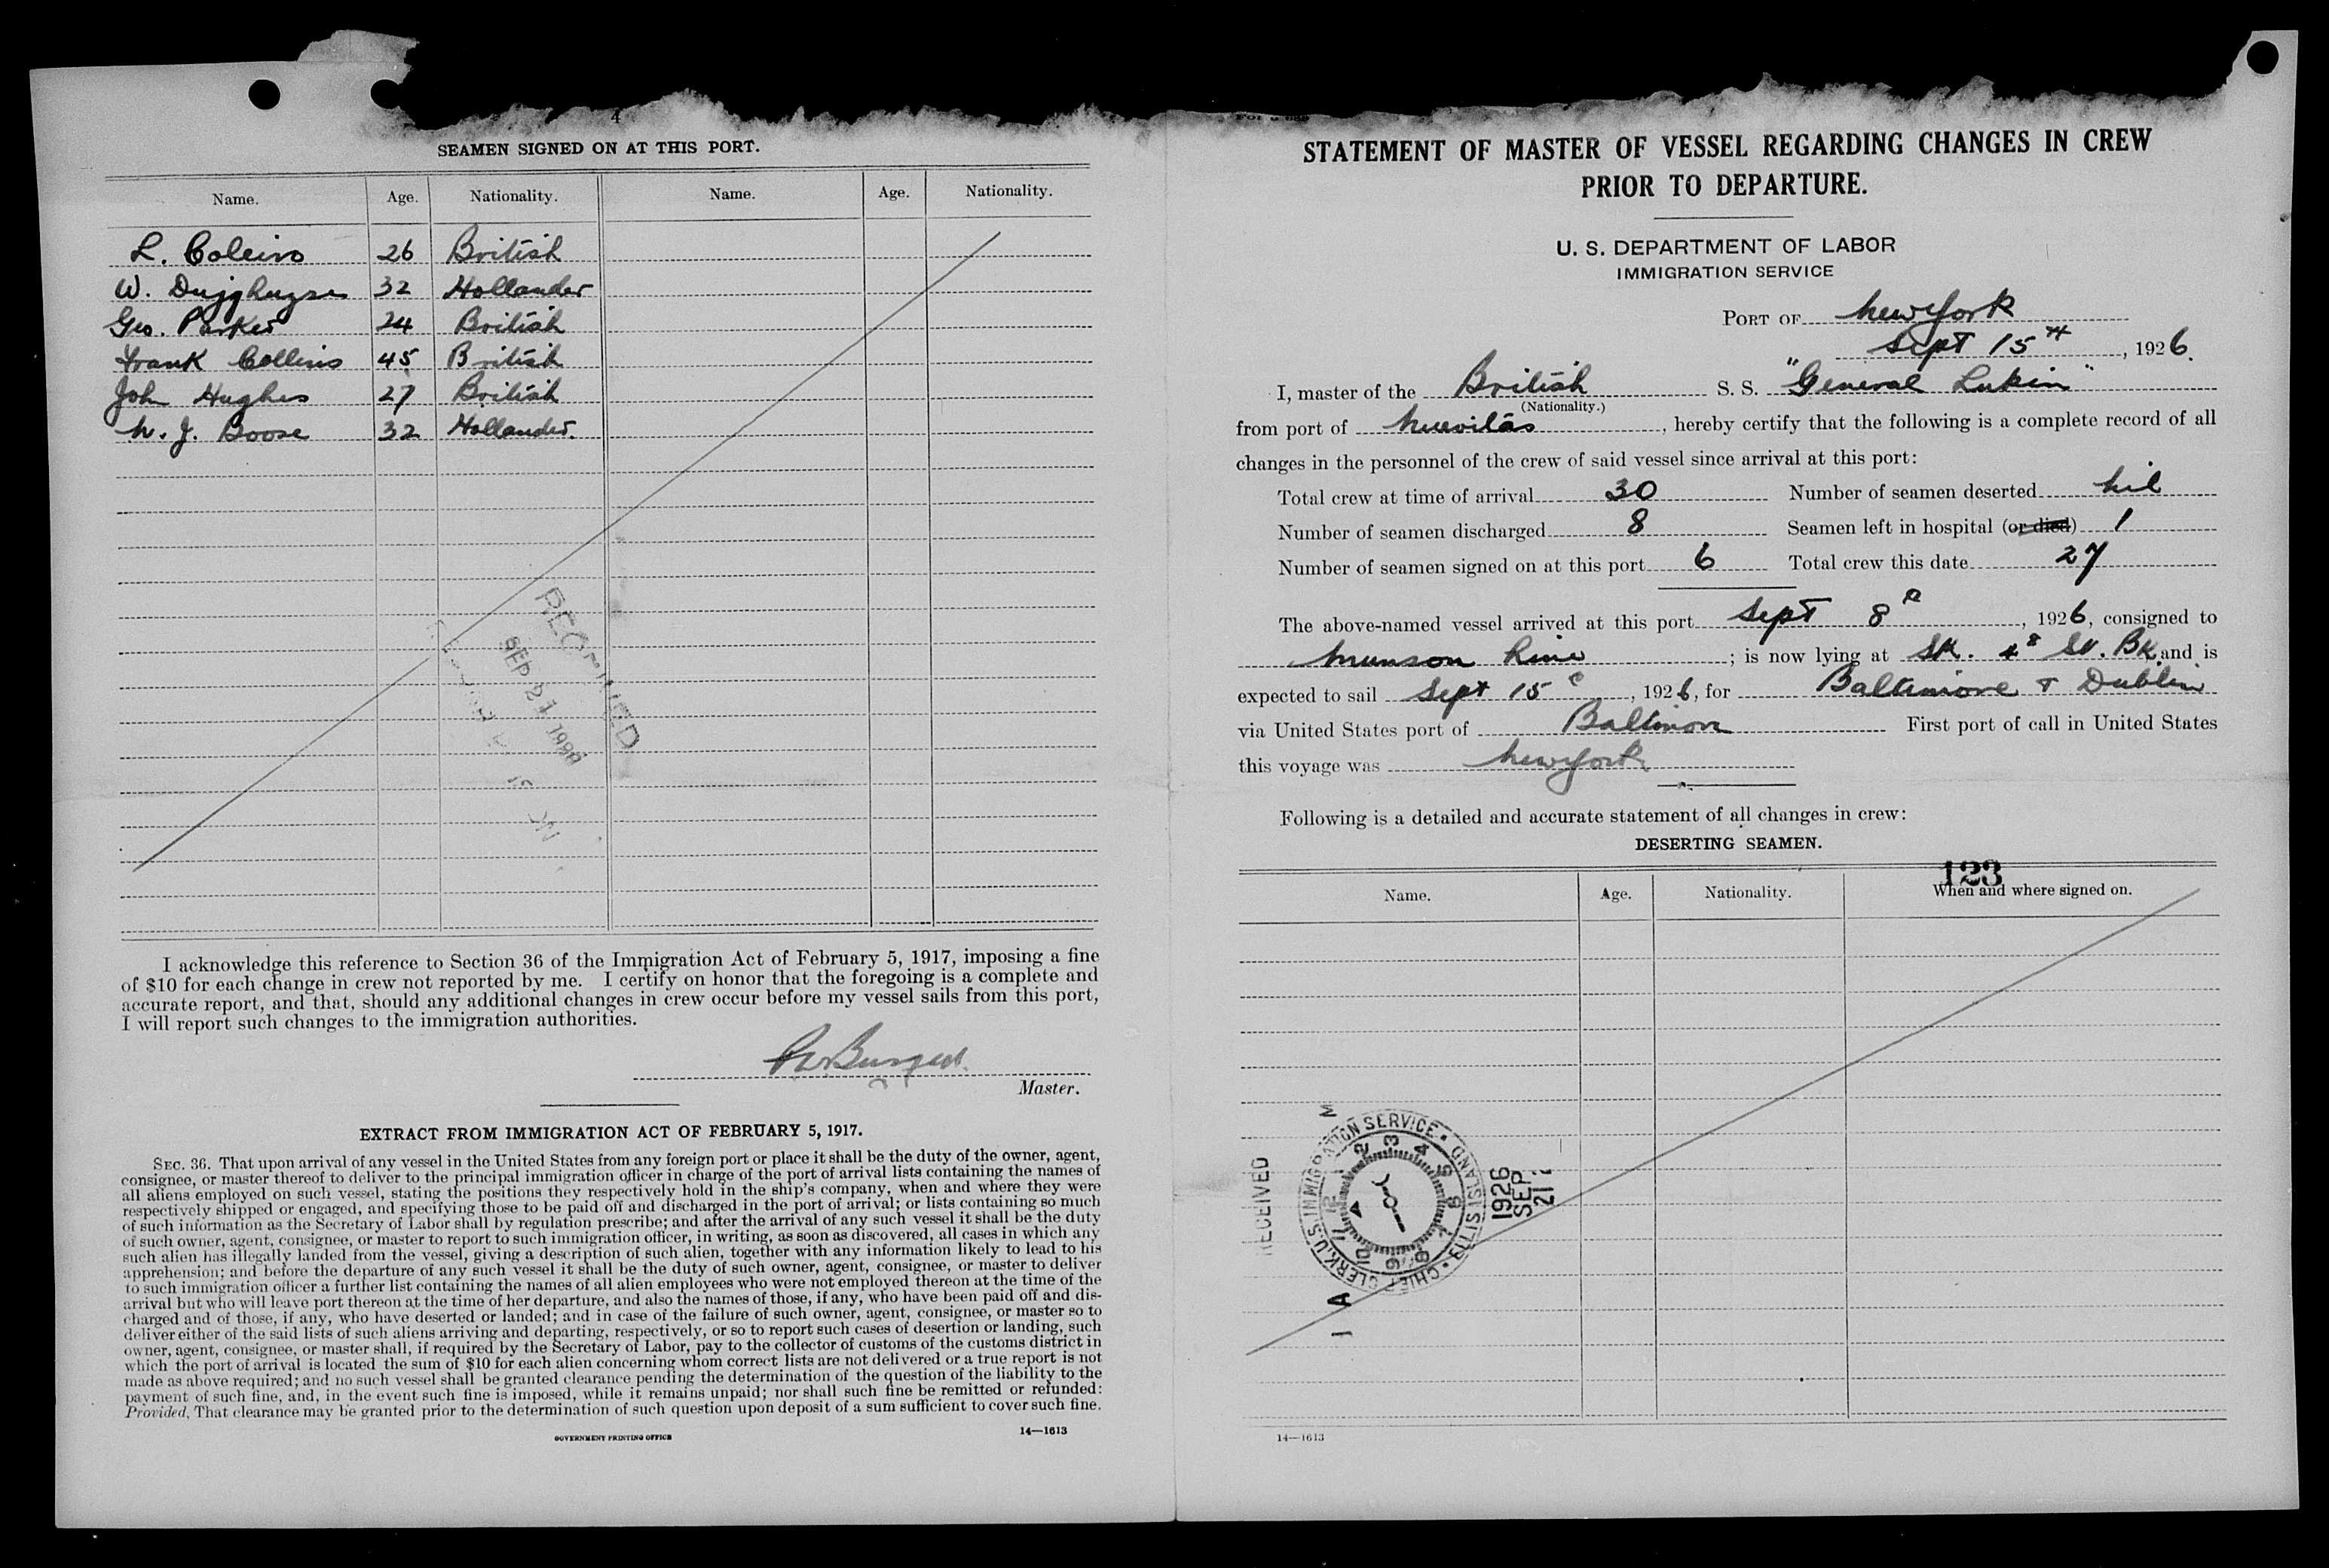 4
SEAMEN SIGNED ON AT THIS PORT.
Name. Age. Nationality. Name. Age. Nationality.
L. Coleiro 26 British
W. 32 Hollander
Geo. Parker 24 British
Frank Collins 45 British
John Hughes 27 British
J. Boose 32 Hollander.
SEP 21
I acknowledge this reference to Section 36 of the Immigration Act of February 5, 1917, imposing a fine
of $10 for each change in crew not reported by me. I certify on honor that the foregoing is a complete and
accurate report, and that, should any additional changes in crew occur before my vessel sails from this port,
I will report such changes to the immigration authorities.
Master.
EXTRACT FROM IMMIGRATION ACT OF FEBRUARY 5, 1917.
SEC. 36. That upon arrival of any vessel in the United States from any foreign port or place it shall be the duty of the owner, agent,
consignee, or master thereof to deliver to the principal immigration officer in charge of the port of arrival lists containing the names of
all aliens employed on such vessel, stating the positions they respectively hold in the ship's company, when and where they were
respectively shipped or engaged, and specifying those to be paid off and discharged in the port of arrival; or lists containing so much
of such information as the Secretary of Labor shall by regulation prescribe; and after the arrival of any such vessel it shall be the duty
of such owner, agent, consignee, or master to report to such immigration officer, in writing, as soon as discovered, all cases in which any
such alien has illegally landed from the vessel, giving a description of such alien, together with any information likely to lead to his
apprehension; and before the departure of any such vessel it shall be the duty of such owner, agent, consignee, or master to deliver
to such immigration officer a further list containing the names of all alien employees who were not employed thereon at the time of the
arrival but who will leave port thereon at the time of her departure, and also the names of those, if any, who have been paid off and dis-
charged and of those, if any, who have deserted or landed; and in case of the failure of such owner, agent, consignee, or master so to
deliver either of the said lists of such aliens arriving and departing, respectively, or so to report such cases of desertion or landing, such
owner, agent, consignee, or master shall, if required by the Secretary of Labor, pay to the collector of customs of the customs district in
which the port of arrival is located the sum of $10 for each alien concerning whom correct lists are not delivered or a true report is not
made as above required; and no such vessel shall be granted clearance pending the determination of the question of the liability to the
payment of such fine, and, in the event such fine is imposed, while it remains unpaid; nor shall such fine be remitted or refunded:
Provided, That clearance may be granted prior to the determination of such question upon deposit of a sum sufficient to cover such fine.
GOVERNMENT PRINTING OFFICE 14—1613
STATEMENT OF MASTER OF VESSEL REGARDING CHANGES IN CREW
PRIOR TO DEPARTURE.
U. S. DEPARTMENT OF LABOR
IMMIGRATION SERVICE
PORT OF New York
Sept 15th, 1926.
I, master of the British S. S. "General Lukin"
(Nationality.)
from port of Nuevitas, hereby certify that the following is a complete record of all
changes in the personnel of the crew of said vessel since arrival at this port:
Total crew at time of arrival 30 Number of seamen deserted nil
Number of seamen discharged 8 Seamen left in hospital (or died) 1
Number of seamen signed on at this port 6 Total crew this date 27
The above-named vessel arrived at this port Sept 8, 1926, consigned to
Munson Line; is now lying at St. Bk and is
expected to sail Sept 15, 1926, for Baltimore & Dublin
via United States port of Baltimore First port of call in United States
this voyage was New York
Following is a detailed and accurate statement of all changes in crew:
DESERTING SEAMEN.
123
Name. Age. Nationality. When and where signed on.
RECEIVED
CHIEF CLERK, U.S. IMMIGRATION SERVICE • ELLIS ISLAND •
1 2 3 4 5 6 7 8 9 10 11 12
1926
SEP
21
14—1613